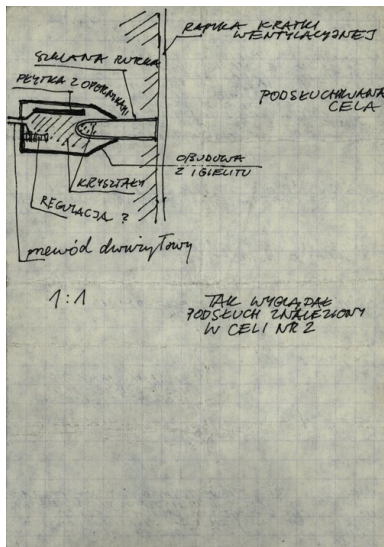 RAMKA KRATKI
WENTYLACYJNEJ
SZKLANA RURKA
PŁYTKA Z OPORNIKAMI
PODSŁUCHIWANA
CELA
OBUDOWA
Z IGIELITU
KRYSZTAŁY
REGULACJA ?
przewód dwużyłowy
1:1
TAK WYGLĄDAŁ
PODSŁUCH ZNALEZIONY
W CELI NR 2